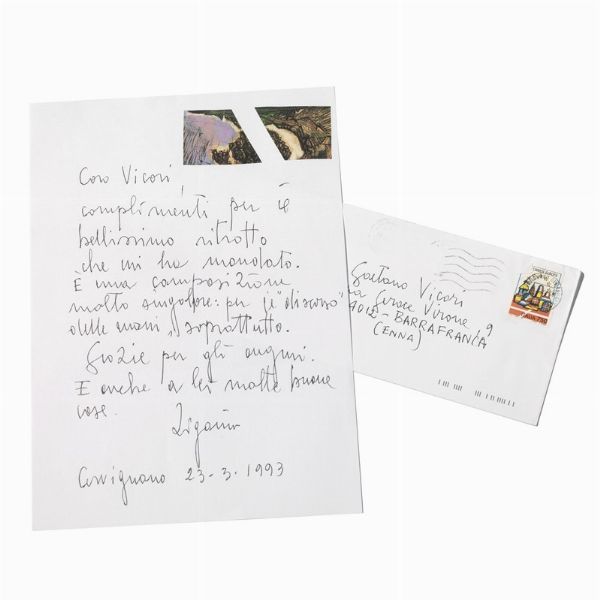 Caro Vicari,
complimenti per il
bellissimo ritratto
che mi ha mandato.
È una composizione
molto singolare: per il "discorso"
delle mani, soprattutto.
Grazie per gli auguri.
E anche a lei molte buone
cose.
Zigaina
Cervignano 23-3-1993
Gaetano Vicari
Via Verone, 9
BARRAFRANCA
(ENNA)
ITALIA 750